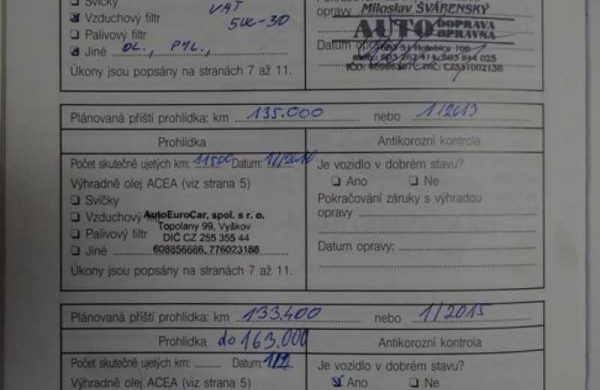 Svíčky
Vzduchový filtr
5W-30
Palivový filtr
Jiné OL., PYL.,
Úkony jsou popsány na stranách 7 až 11.
opravy Miloslav ŠVÁBENSKÝ
AUTO DOPRAVA
OPRAVNA
Datum
Plánovaná příští prohlídka: km 135.000 nebo 1/2013
Prohlídka
Antikorozní kontrola
Počet skutečně ujetých km: Datum:
Výhradně olej ACEA (viz strana 5)
Svíčky
Vzduchový AutoEuroCar, spol. s r. o.
Palivový filtr Topolany 99, Vyškov
DIČ CZ 255 355 44
Jiné 608856686, 776023186
Úkony jsou popsány na stranách 7 až 11.
Je vozidlo v dobrém stavu?
Ano Ne
Pokračování záruky s výhradou
opravy
Datum opravy:
Plánovaná příští prohlídka: km 133.400 nebo 1/2015
Prohlídka do 163.000
Antikorozní kontrola
Počet skutečně ujetých km: Datum:
Výhradně olej ACEA (viz strana 5)
Je vozidlo v dobrém stavu?
Ano Ne